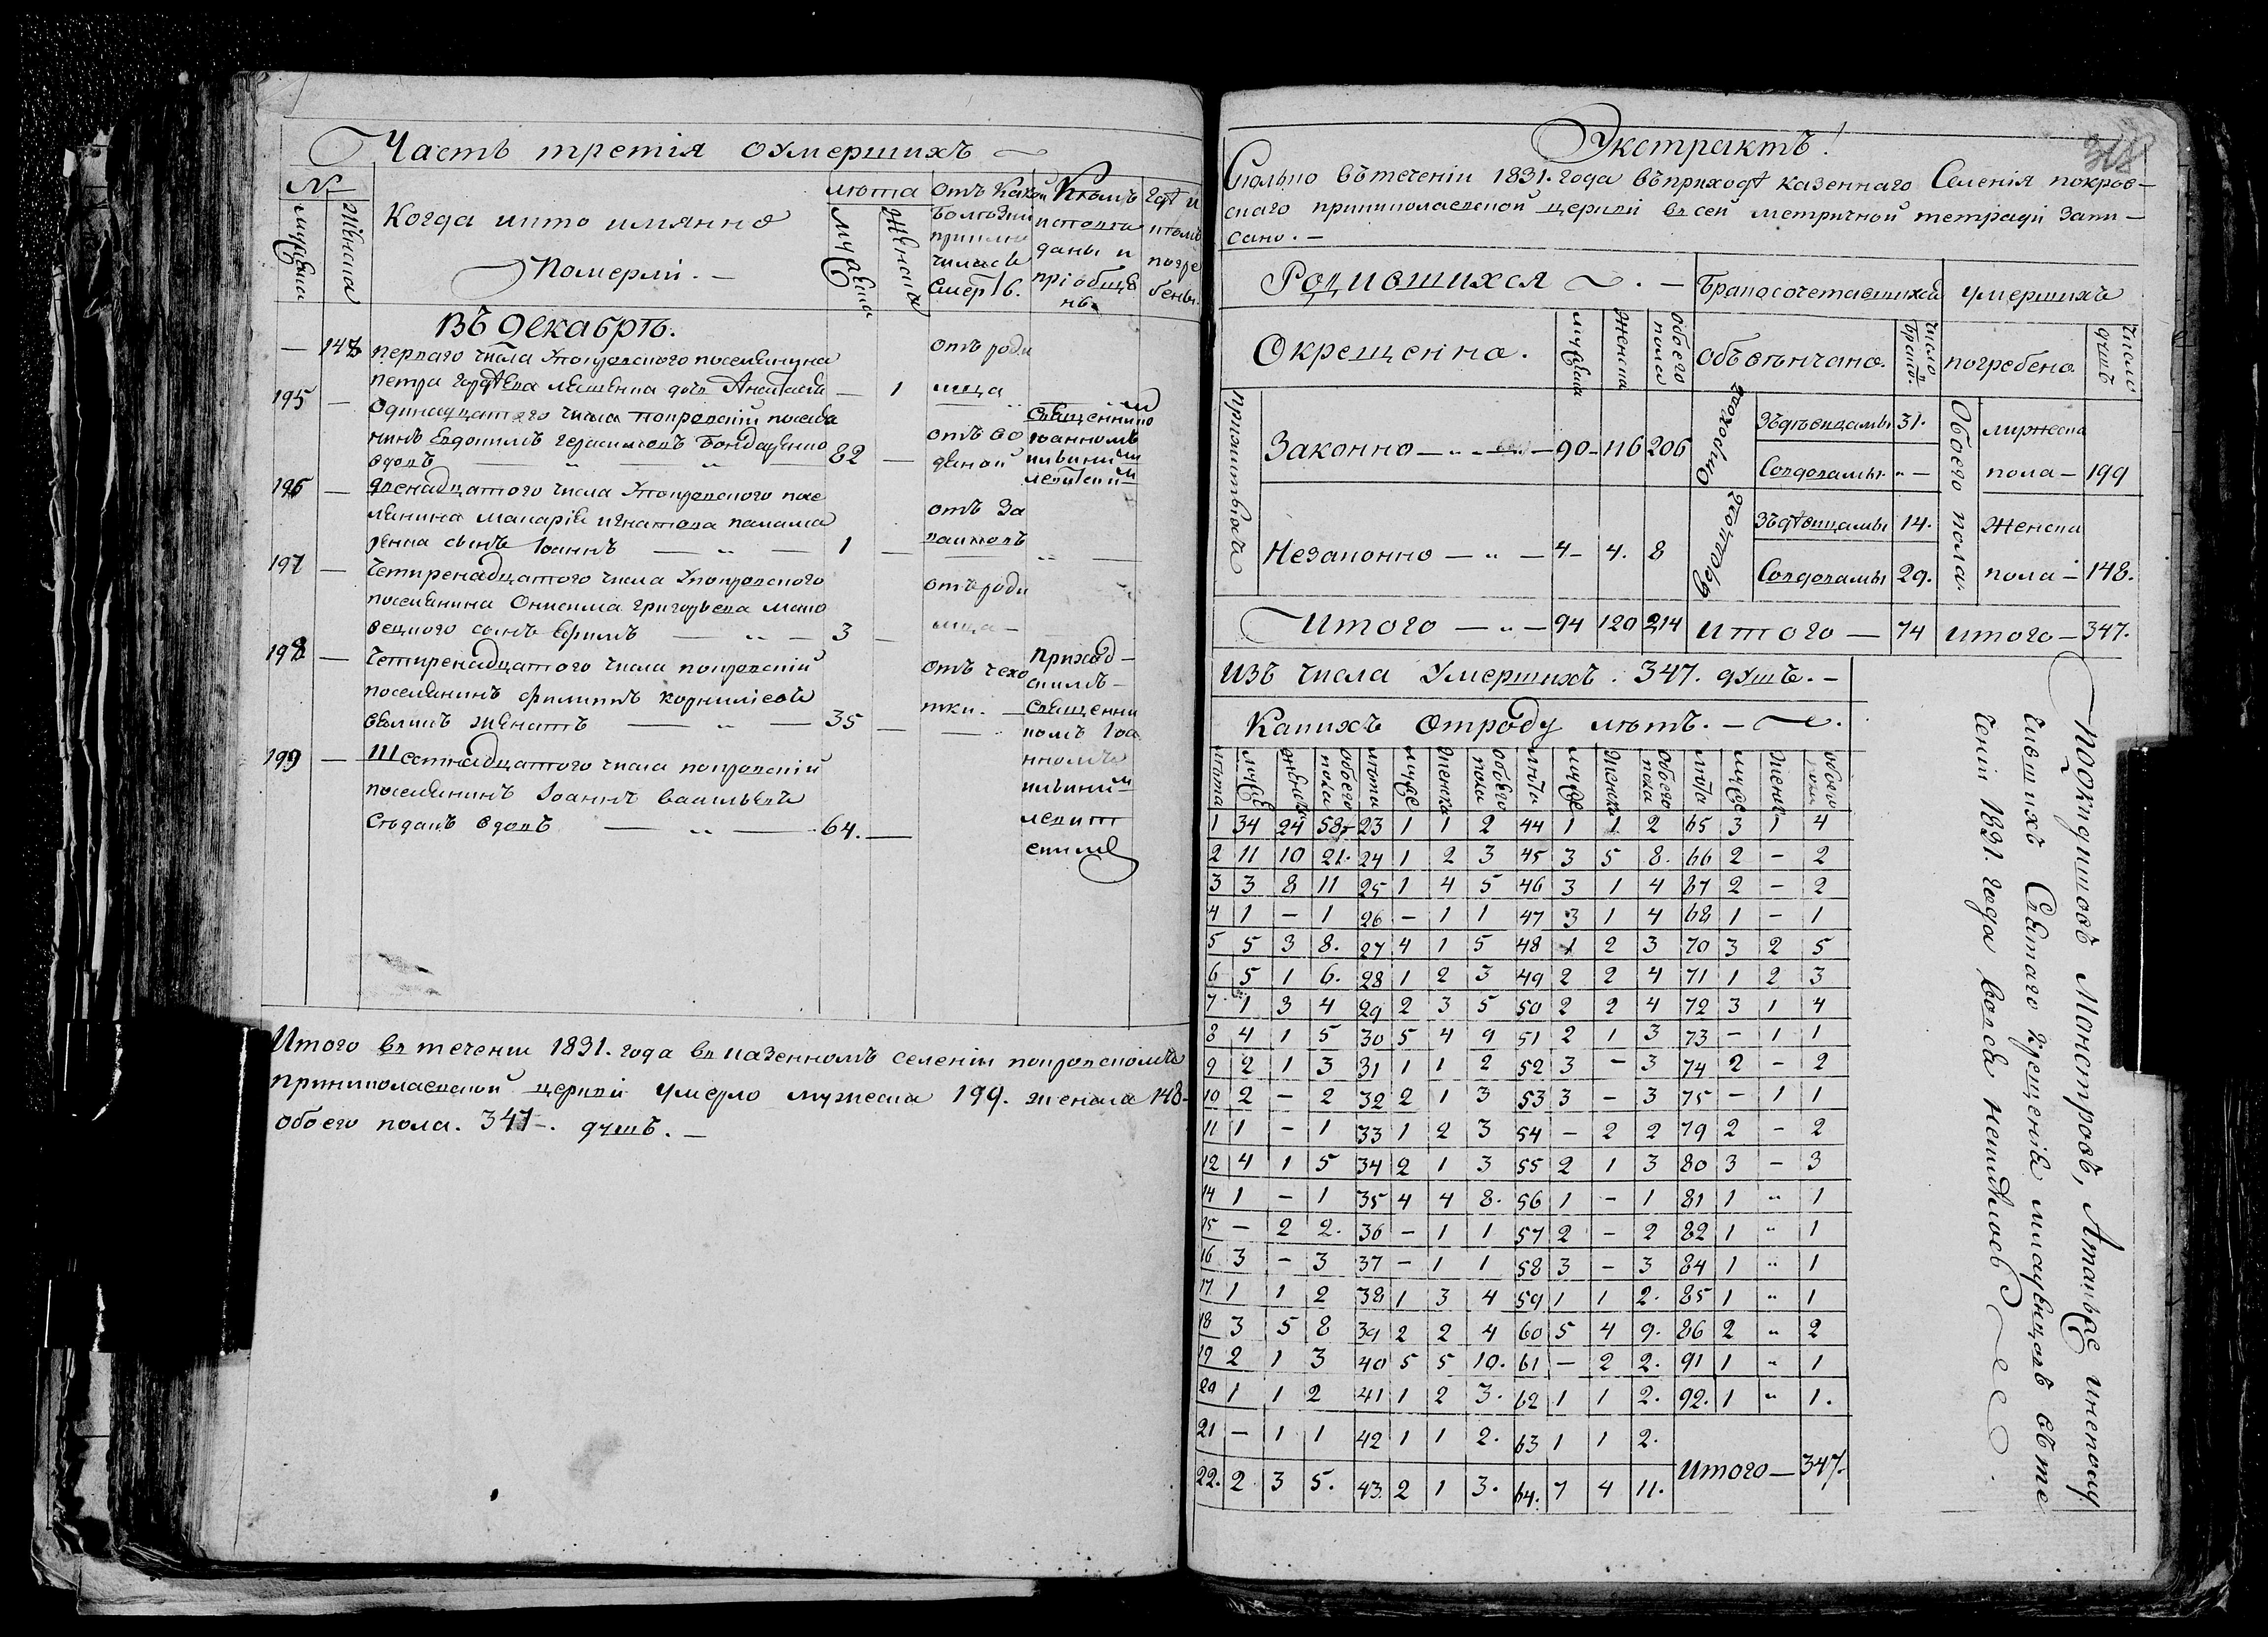 Часть третія оумершихъ
№
мужеска
женска
Когда икто имянно
Померлі. —
лѣта
мужеска
женска
отъ Какой
болѣзни
приклю
чилась
Смерть.
Кѣмъ
исповѣ
даны и
пріобще
ны.
Гдѣ и
кѣмъ
погре
бены.
Въ декабрѣ.
— 148 перваго числа Упокровского поселянина
Петра дочь — 1
отъ роди
мца
195 — Одинадцатого числа покровскій поселя
нинъ Евдокимъ Герасимовъ Бондаренко
вдовъ — „ — „ — 82 —
отъ во
дяной
Священнико
Іоанномъ
196 — двенадцатого числа Упокровского посе
лянина Макарія Игнатова Паламар
ренка сынъ Іоаннъ — „ — 1 —
отъ За
197 — Четиренадцатого числа Упокровского
поселянина Онисима Григорьева Мако
вецкого сынъ Ефимъ — „ — 3 —
отъ роди
мца —
198 — Четиренадцатого числа покровскій
поселянинъ Филиппъ Корниліевъ
женатъ — „ — 35 —
отъ чехо
тки. —
Приход-
скимъ —
Священни
комъ Іоа
нномъ
199 — Шестнадцатого числа покровскій
поселянинъ Іоаннъ Васильевъ
вдовъ — „ — 64. —
Итого въ теченіи 1831. года въ казенномъ селеніи покровскомъ
приниколаевской церкви умерло мужеска 199. женска 148-
обоего пола. 347-. душъ. —
318
Экстрактъ!
Сколько вътеченіи 1831. года въприходѣ казеннаго Селенія покров-
скаго приниколаевской церкви въ сей метричной тетради Запи-
сано. —
Родившихся . —
Бракосочетавшихся
умершихъ
Окрещенно.
мужеска
женска
обоего пола
объвѣнчано.
число браков.
погребено
число душъ
Законно — „ — 90 - 116 206
Незаконно — „ — 4 - 4. 8
Итого — „ — 94 120 214
Отрокого
Зъдѣвицамы 31.
Совдовамы „ —
Вдовцовъ
Зъдѣвицамы 14.
Совдовамы 29.
Итого — 74
Обоего пола.
мужеска
пола — 199
Женска
пола — 148.
итого — 347.
изъ числа Умершихъ. 347. душъ. —
Какихъ отроду лѣтъ. —
лѣта муже женска обоего пола лѣта муже женска обоего пола лѣта муже женска обоего пола лѣта муже женска обоего пола
1 34 24 58 23 1 1 2 44 1 1 2 65 3 1 4
2 11 10 21. 24 1 2 3 45 3 5 8. 66 2 – 2
3 3 8 11 25 1 4 5 46 3 1 4 67 2 – 2
4 1 – 1 26 – 1 1 47 3 1 4 68 1 – 1
5 5 3 8. 27 4 1 5 48 1 2 3 70 3 2 5
6 5 1 6. 28 1 2 3 49 2 2 4 71 1 2 3
7 1 3 4 29 2 3 5 50 2 2 4 72 3 1 4
8 4 1 5 30 5 4 9 51 2 1 3 73 – 1 1
9 2 1 3 31 1 1 2 52 3 – 3 74 2 – 2
10 2 – 2 32 2 1 3 53 3 – 3 75 – 1 1
11 1 – 1 33 1 2 3 54 – 2 2 79 2 – 2
12 4 1 5 34 2 1 3 55 2 1 3 80 3 – 3
14 1 – 1 35 4 4 8. 56 1 – 1 81 1 „ 1
15 – 2 2. 36 – 1 1 57 2 – 2 82 1 „ 1
16 3 – 3 37 – 1 1 58 3 – 3 84 1 „ 1
17 1 1 2 38 1 3 4 59 1 1 2. 85 1 „ 1
18 3 5 8 39 2 2 4 60 5 4 9. 86 2 „ 2
19 2 1 3 40 5 5 10. 61 – 2 2. 91 1 „ 1
20 1 1 2 41 1 2 3. 62 1 1 2. 92. 1 „ 1.
21 – 1 1 42 1 1 2. 63 1 1 2.
22. 2 3 5. 43. 2 1 3. 64. 7 4 11.
Итого — 347.
Подкидишовъ Монстровъ, Атакъже инепому
чившихъ Святаго крещенія младенцовъ въте
ченіи 1831. года вовся неимѣлось